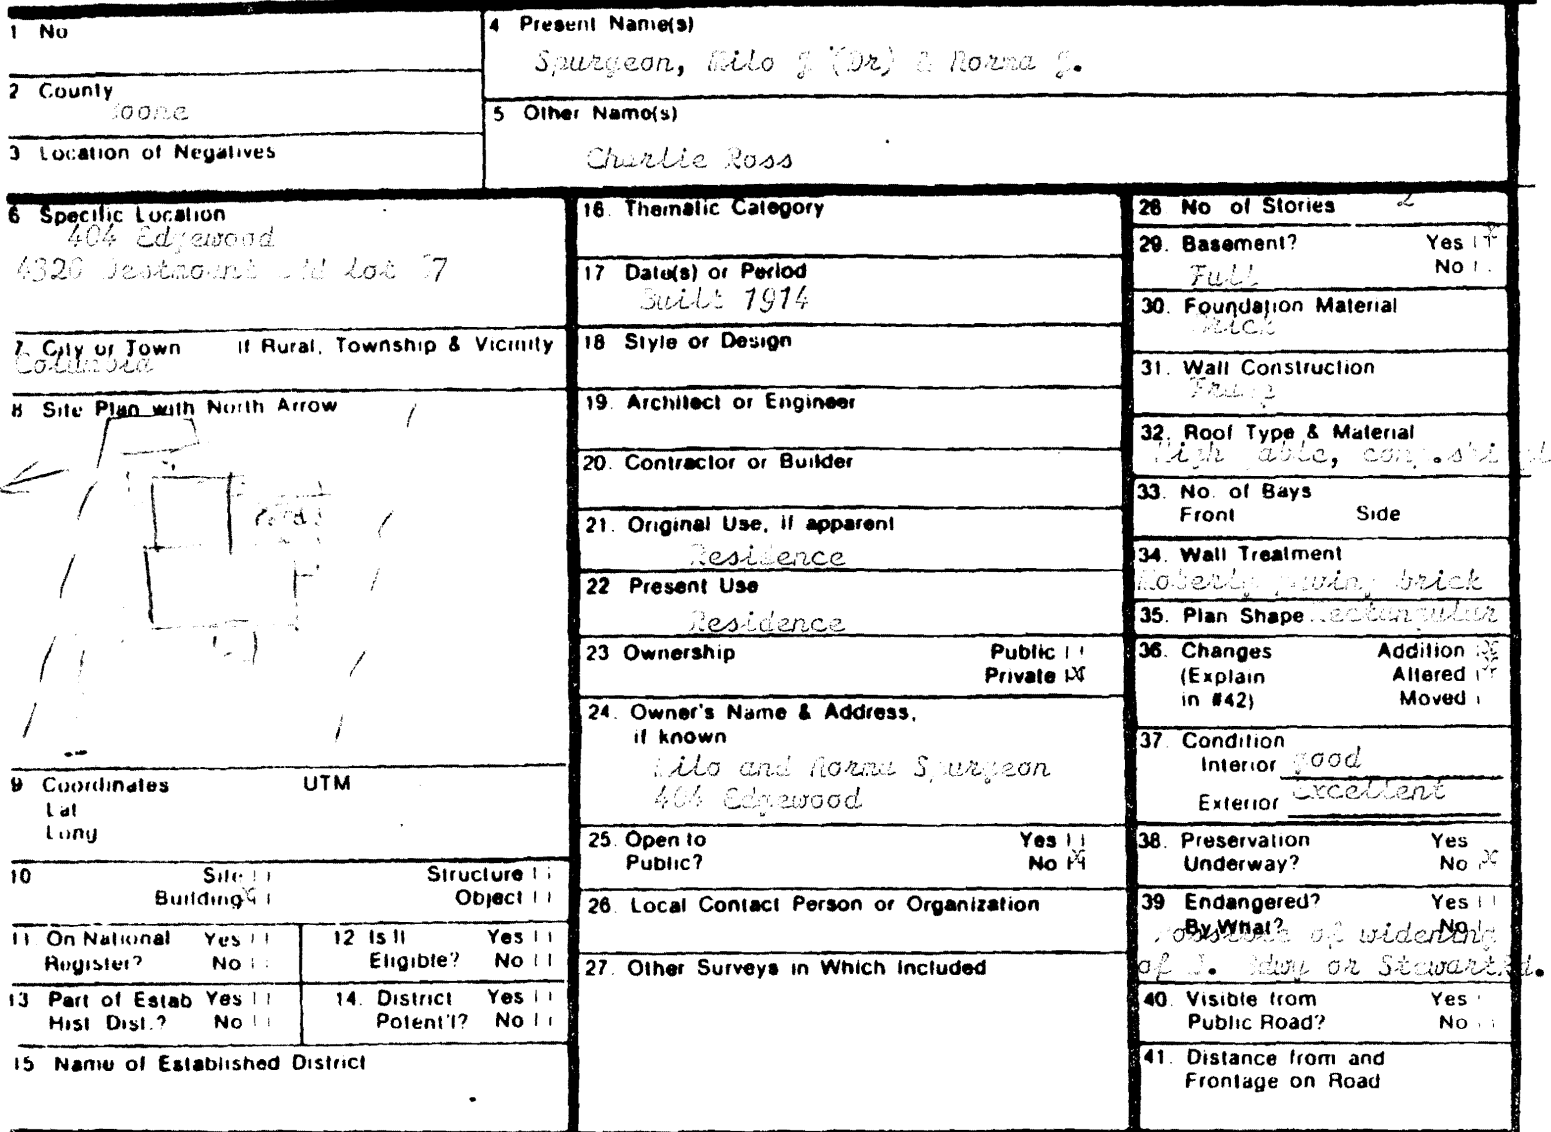 1 No
4 Present Name(s)
Spurgeon, Milo J (Dr) & Norma J.
2 County
Boone
5 Other Name(s)
Charlie Ross
3 Location of Negatives
6 Specific Location
404 Edgewood
4320 Westmount lot
7. City or Town If Rural, Township & Vicinity
Columbia
8 Site Plan with North Arrow
9 Coordinates UTM
Lat
Long
10 Site Structure
Building X Object
11. On National Register? Yes No
12 Is It Eligible? Yes No
13 Part of Estab Hist Dist.? Yes No
14. District Potent'l? Yes No
15 Name of Established District
16. Thematic Category
17 Date(s) or Period
Built 1914
18 Style or Design
19. Architect or Engineer
20. Contractor or Builder
21. Original Use, if apparent
Residence
22 Present Use
Residence
23 Ownership Public
Private X
24. Owner's Name & Address,
if known
Milo and Norma Spurgeon
404 Edgewood
25. Open to Yes
Public? No X
26. Local Contact Person or Organization
27. Other Surveys in Which Included
28 No of Stories 2
29. Basement? Yes X
Full No
30. Foundation Material
Brick
31. Wall Construction
Frame
32. Roof Type & Material
High gable, comp.
33. No. of Bays
Front Side
34. Wall Treatment
Moberly paving brick
35. Plan Shape Rectangular
36. Changes Addition X
(Explain Altered X
in #42) Moved
37. Condition
Interior good
Exterior excellent
38. Preservation Yes
Underway? No X
39 Endangered? Yes
By What? No
Possible of widening
of Hdwy or Stewart Rd.
40. Visible from Yes
Public Road? No
41. Distance from and
Frontage on Road